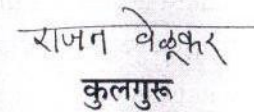 राजन वेळूकर
कुलगुरू